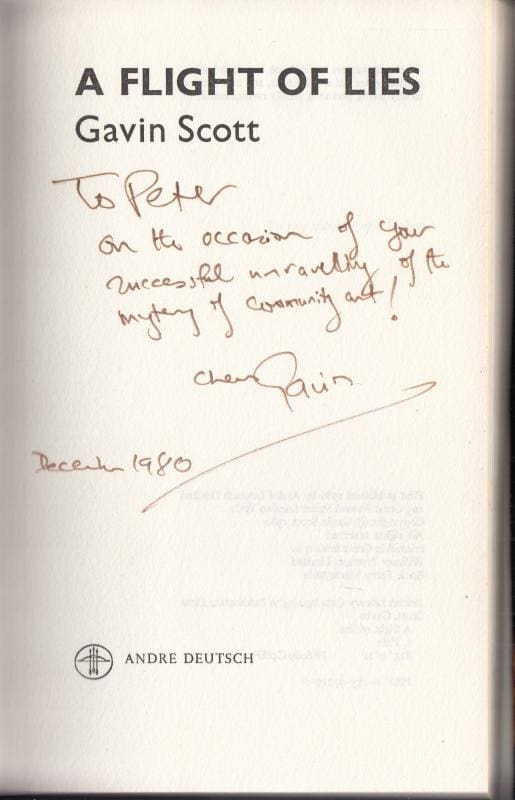 A FLIGHT OF LIES
Gavin Scott
To Peter
on the occasion of your
successful unravelling of the
mystery of community art!
Cheers Gavin
December 1980
ANDRE DEUTSCH